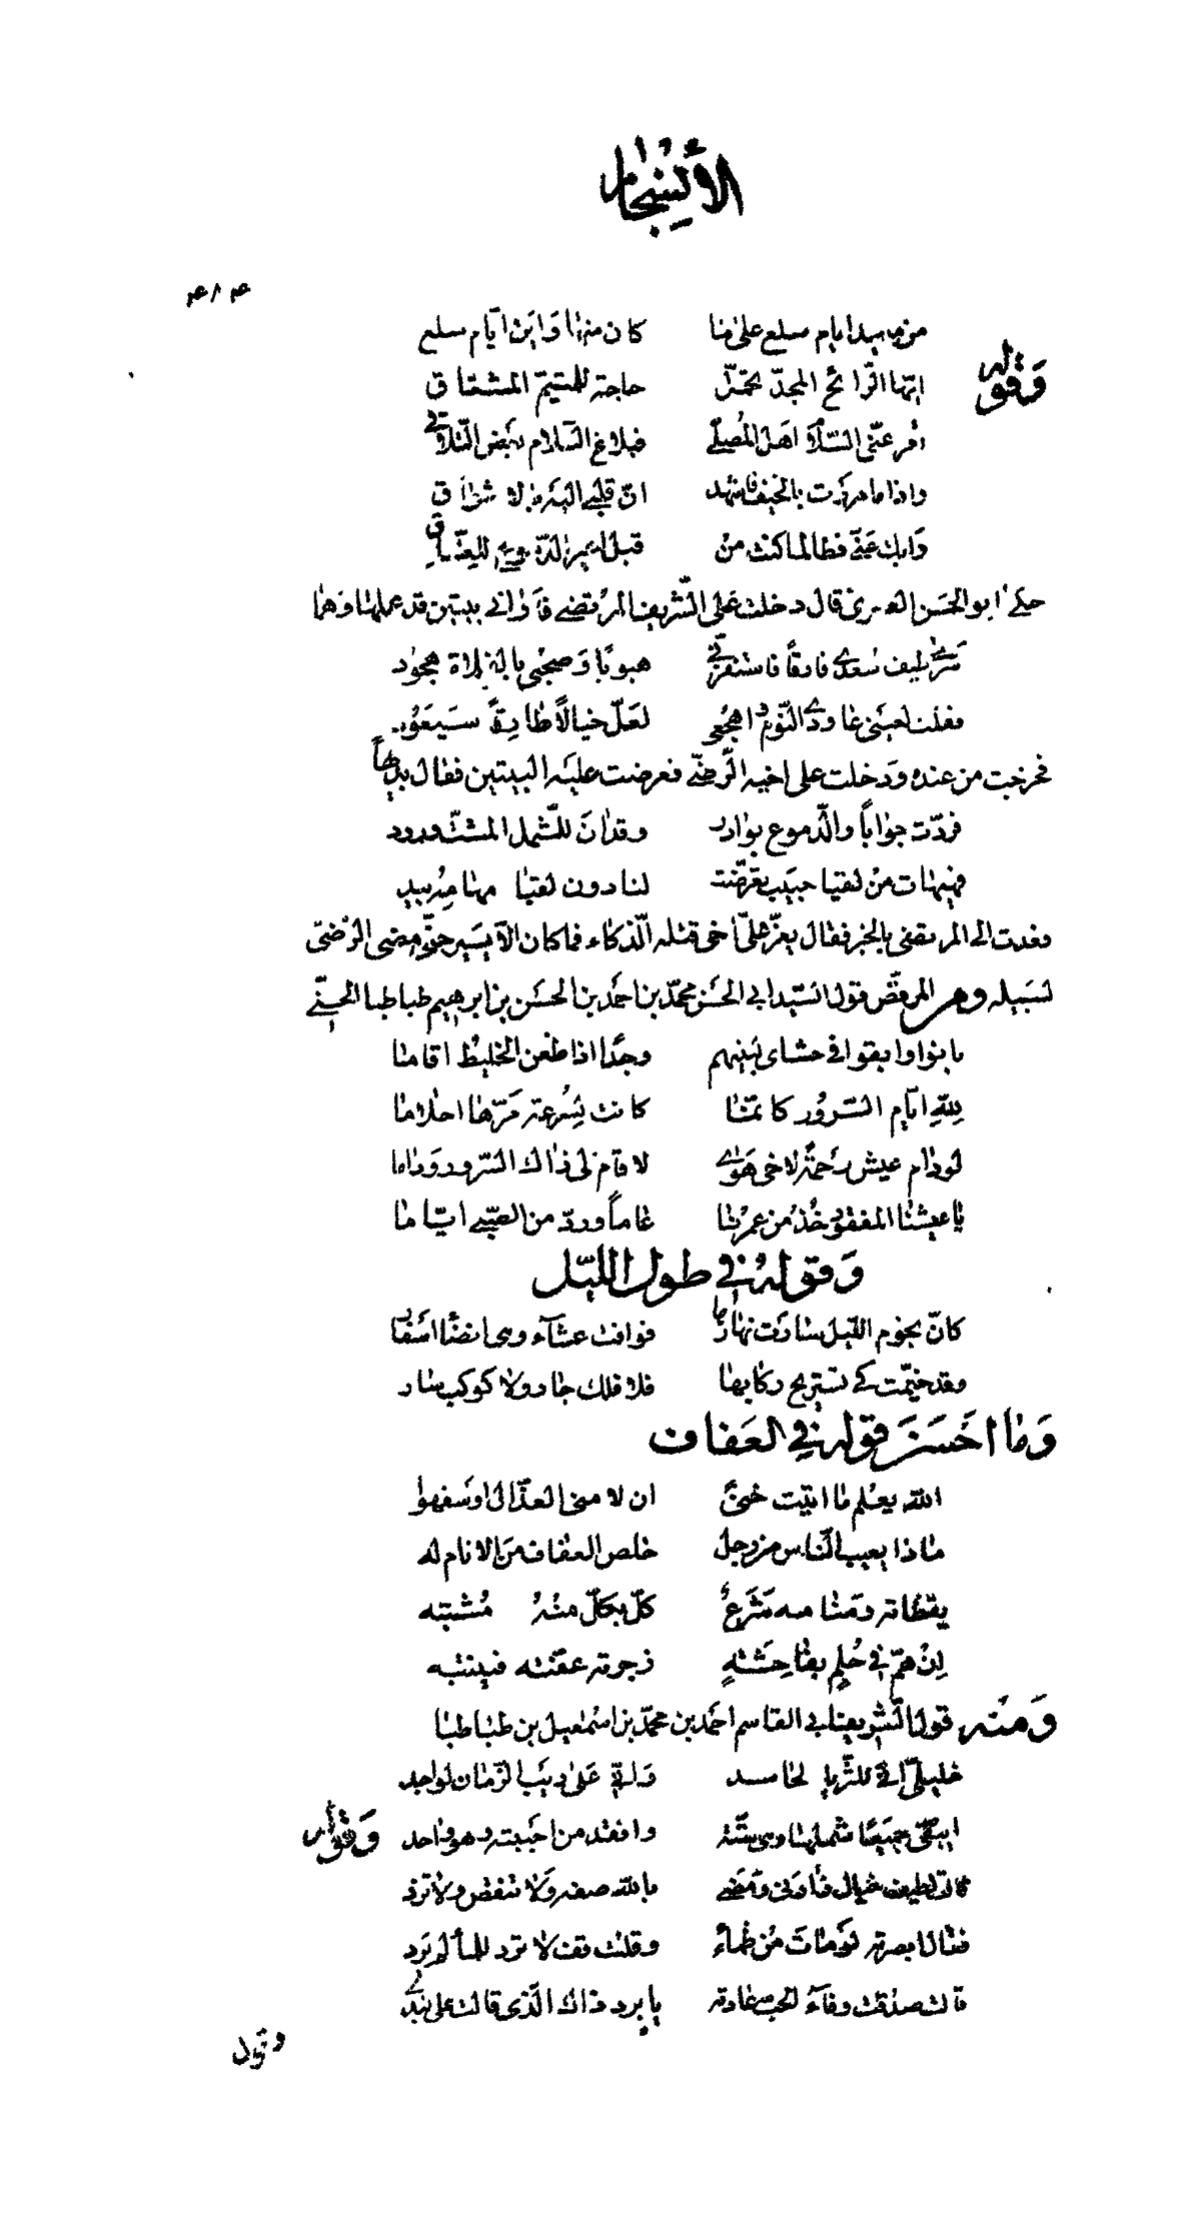 الأنسجام
٤١٤
من معيد ايام سلع على ما كان منها واين ايام سلع
وقوله
ايها الرائح المجد تحمل حاجة للمتيم المشتاق
اقر عني السلام اهل المصلى فبلاغ السلام بعض التلاقي
واذا ما مررت بالخيف فاشهد ان قلبي اليه بالاشواق
وابك عني فطالما كنت من قبل اعير الدموع للعشاق
حكى ابو الحسن العمري قال دخلت على الشريف المرتضى فاراني بيتين قد عملهما وهما
سرى طيف سعدى طارقا فاستفزني هبوبا وصحبي بالفلاة هجود
فقلت لعيني عاودي النوم واهجعي لعل خيالا طارقا سيعود
فخرجت من عنده ودخلت على اخيه الرضي فعرضت عليه البيتين فقال بديها
فردت جوابا والدموع بوادر وقد ان للشمل المشت ورود
فهيهات من لقيا حبيب تعرضت لنا دون لقياه مهامه بيد
فعدت الى المرتضى بالخبر فقال يعز علي اخي قتله الذكاء فما كان الا يسير حتى مضى الرضي
لسبيله ومن المرقص قول السيد ابي الحسن محمد بن احمد بن الحسن بن ابرهيم طباطبا الحسني
بانوا وابقوا في حشاي لبينهم وجدا اذا ظعن الخليط اقاما
لله ايام السرور كانما كانت لسرعة مرها احلاما
لو دام عيش رحمة لاخي هوى لاقام لي ذاك السرور وداما
يا عيشنا المفقود خذ من عمرنا عاما وردّ من الصبى اياما
وقوله في طول الليل
كان نجوم الليل سارت نهارها فوافت عشاء وهي انضاء اسفار
وقد خيمت كي تستريح ركابها فلا فلك جار ولا كوكب سار
وما احسن قوله في العفاف
الله يعلم ما اتيت خنى ان لامني العذال او سفهوا
ماذا يعيب الناس من رجل خلص العفاف من الانام له
يقظاته ومنامه شرع كلّ بكلّ منه مشتبه
ان همّ في حلم بفاحشة زجرته عفته فينتبه
ومنه قول الشريف ابي القاسم احمد بن محمد بن اسمعيل بن طباطبا
خليلي اني للثريا لحاسد واني على ريب الزمان لواجد
ايبقى جميعا شملها وهي ستة وافقد من احببته وهو واحد وقوله
قالت لطيف خيال زارني ومضى بالله صفه ولا تنقص ولا تزد
فقال ابصرته لو مات من ظماء وقلت قف لا ترد للماء لم يرد
قالت صدقت وفاء الحب عادته يا برد ذاك الذي قالت على كبدي
وقول